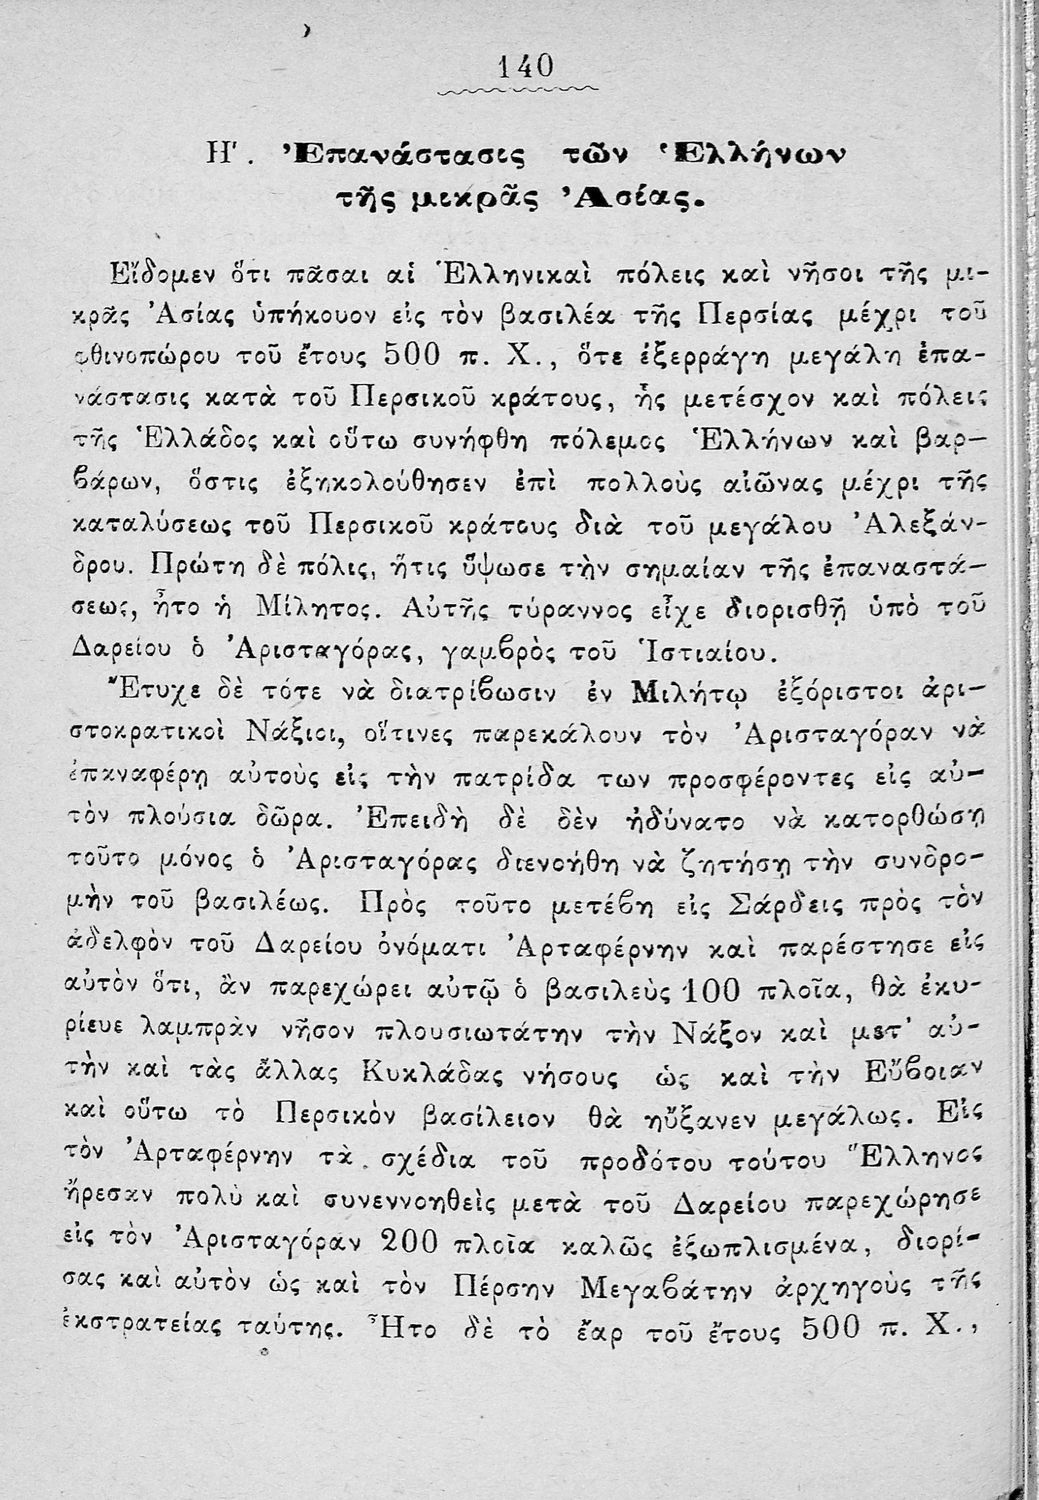 140
Η'. Ἐπανάστασις τῶν Ἑλλήνων
τῆς μικρᾶς Ἀσίας.
Εἴδομεν ὅτι πᾶσαι αἱ Ἑλληνικαὶ πόλεις καὶ νῆσοι τῆς μι-
κρᾶς Ἀσίας ὑπήκουον εἰς τὸν βασιλέα τῆς Περσίας μέχρι τοῦ
φθινοπώρου τοῦ ἔτους 500 π. Χ., ὅτε ἐξερράγη μεγάλη ἐπα-
νάστασις κατὰ τοῦ Περσικοῦ κράτους, ἧς μετέσχον καὶ πόλεις
τῆς Ἑλλάδος καὶ οὕτω συνήφθη πόλεμος Ἑλλήνων καὶ βαρ-
βάρων, ὅστις ἐξηκολούθησεν ἐπὶ πολλοὺς αἰῶνας μέχρι τῆς
καταλύσεως τοῦ Περσικοῦ κράτους διὰ τοῦ μεγάλου Ἀλεξάν-
δρου. Πρώτη δὲ πόλις, ἥτις ὕψωσε τὴν σημαίαν τῆς ἐπαναστά-
σεως, ἦτο ἡ Μίλητος. Αὐτῆς τύραννος εἶχε διορισθῇ ὑπὸ τοῦ
Δαρείου ὁ Ἀρισταγόρας, γαμβρὸς τοῦ Ἱστιαίου.
Ἔτυχε δὲ τότε νὰ διατρίβωσιν ἐν Μιλήτῳ ἐξόριστοι ἀρι-
στοκρατικοὶ Νάξιοι, οἵτινες παρεκάλουν τὸν Ἀρισταγόραν νὰ
ἐπαναφέρῃ αὐτοὺς εἰς τὴν πατρίδα των προσφέροντες εἰς αὐ-
τὸν πλούσια δῶρα. Ἐπειδὴ δὲ δὲν ἠδύνατο νὰ κατορθώσῃ
τοῦτο μόνος ὁ Ἀρισταγόρας διενοήθη νὰ ζητήσῃ τὴν συνδρο-
μὴν τοῦ βασιλέως. Πρὸς τοῦτο μετέβη εἰς Σάρδεις πρὸς τὸν
ἀδελφὸν τοῦ Δαρείου ὀνόματι Ἀρταφέρνην καὶ παρέστησε εἰς
αὐτὸν ὅτι, ἂν παρεχώρει αὐτῷ ὁ βασιλεὺς 100 πλοῖα, θὰ ἐκυ-
ρίευε λαμπρὰν νῆσον πλουσιωτάτην τὴν Νάξον καὶ μετ' αὐ-
τὴν καὶ τὰς ἄλλας Κυκλάδας νήσους ὡς καὶ τὴν Εὔβοιαν
καὶ οὕτω τὸ Περσικὸν βασίλειον θὰ ηὔξανεν μεγάλως. Εἰς
τὸν Ἀρταφέρνην τὰ σχέδια τοῦ προδότου τούτου Ἕλληνος
ἤρεσαν πολὺ καὶ συνεννοηθεὶς μετὰ τοῦ Δαρείου παρεχώρησε
εἰς τὸν Ἀρισταγόραν 200 πλοῖα καλῶς ἐξωπλισμένα, διορί-
σας καὶ αὐτὸν ὡς καὶ τὸν Πέρσην Μεγαβάτην ἀρχηγοὺς τῆς
ἐκστρατείας ταύτης. Ἦτο δὲ τὸ ἔαρ τοῦ ἔτους 500 π. Χ.,